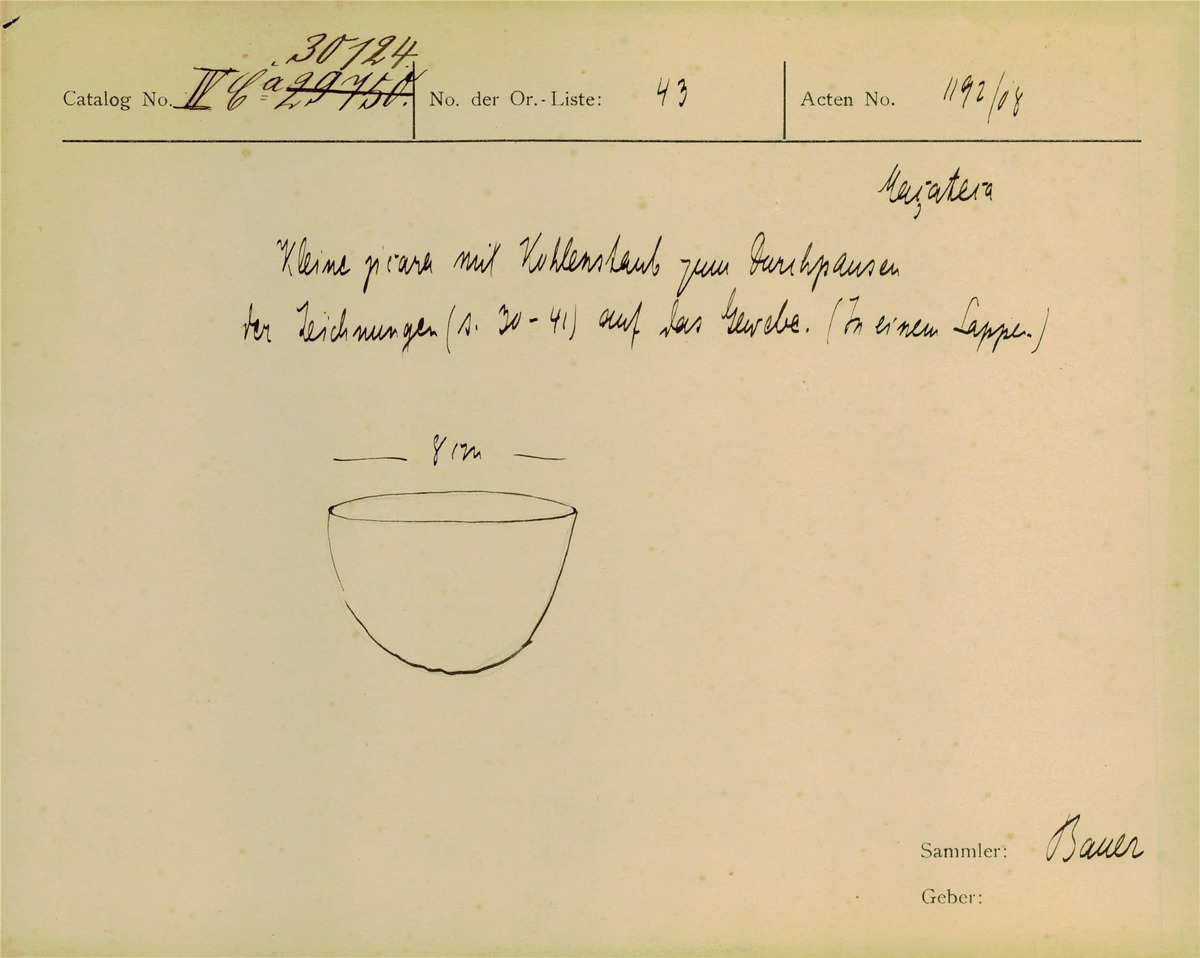 30124.
Catalog No. IV Ca 29750. No. der Or.-Liste: 43 Acten No. 1192/08
Kleine jicara mit Kohlenstaub zum Durchpausen
der Zeichnungen (s. 30-41) auf das Gewebe. (In einem Lappen.)
8 cm
Sammler: Bauer
Geber: